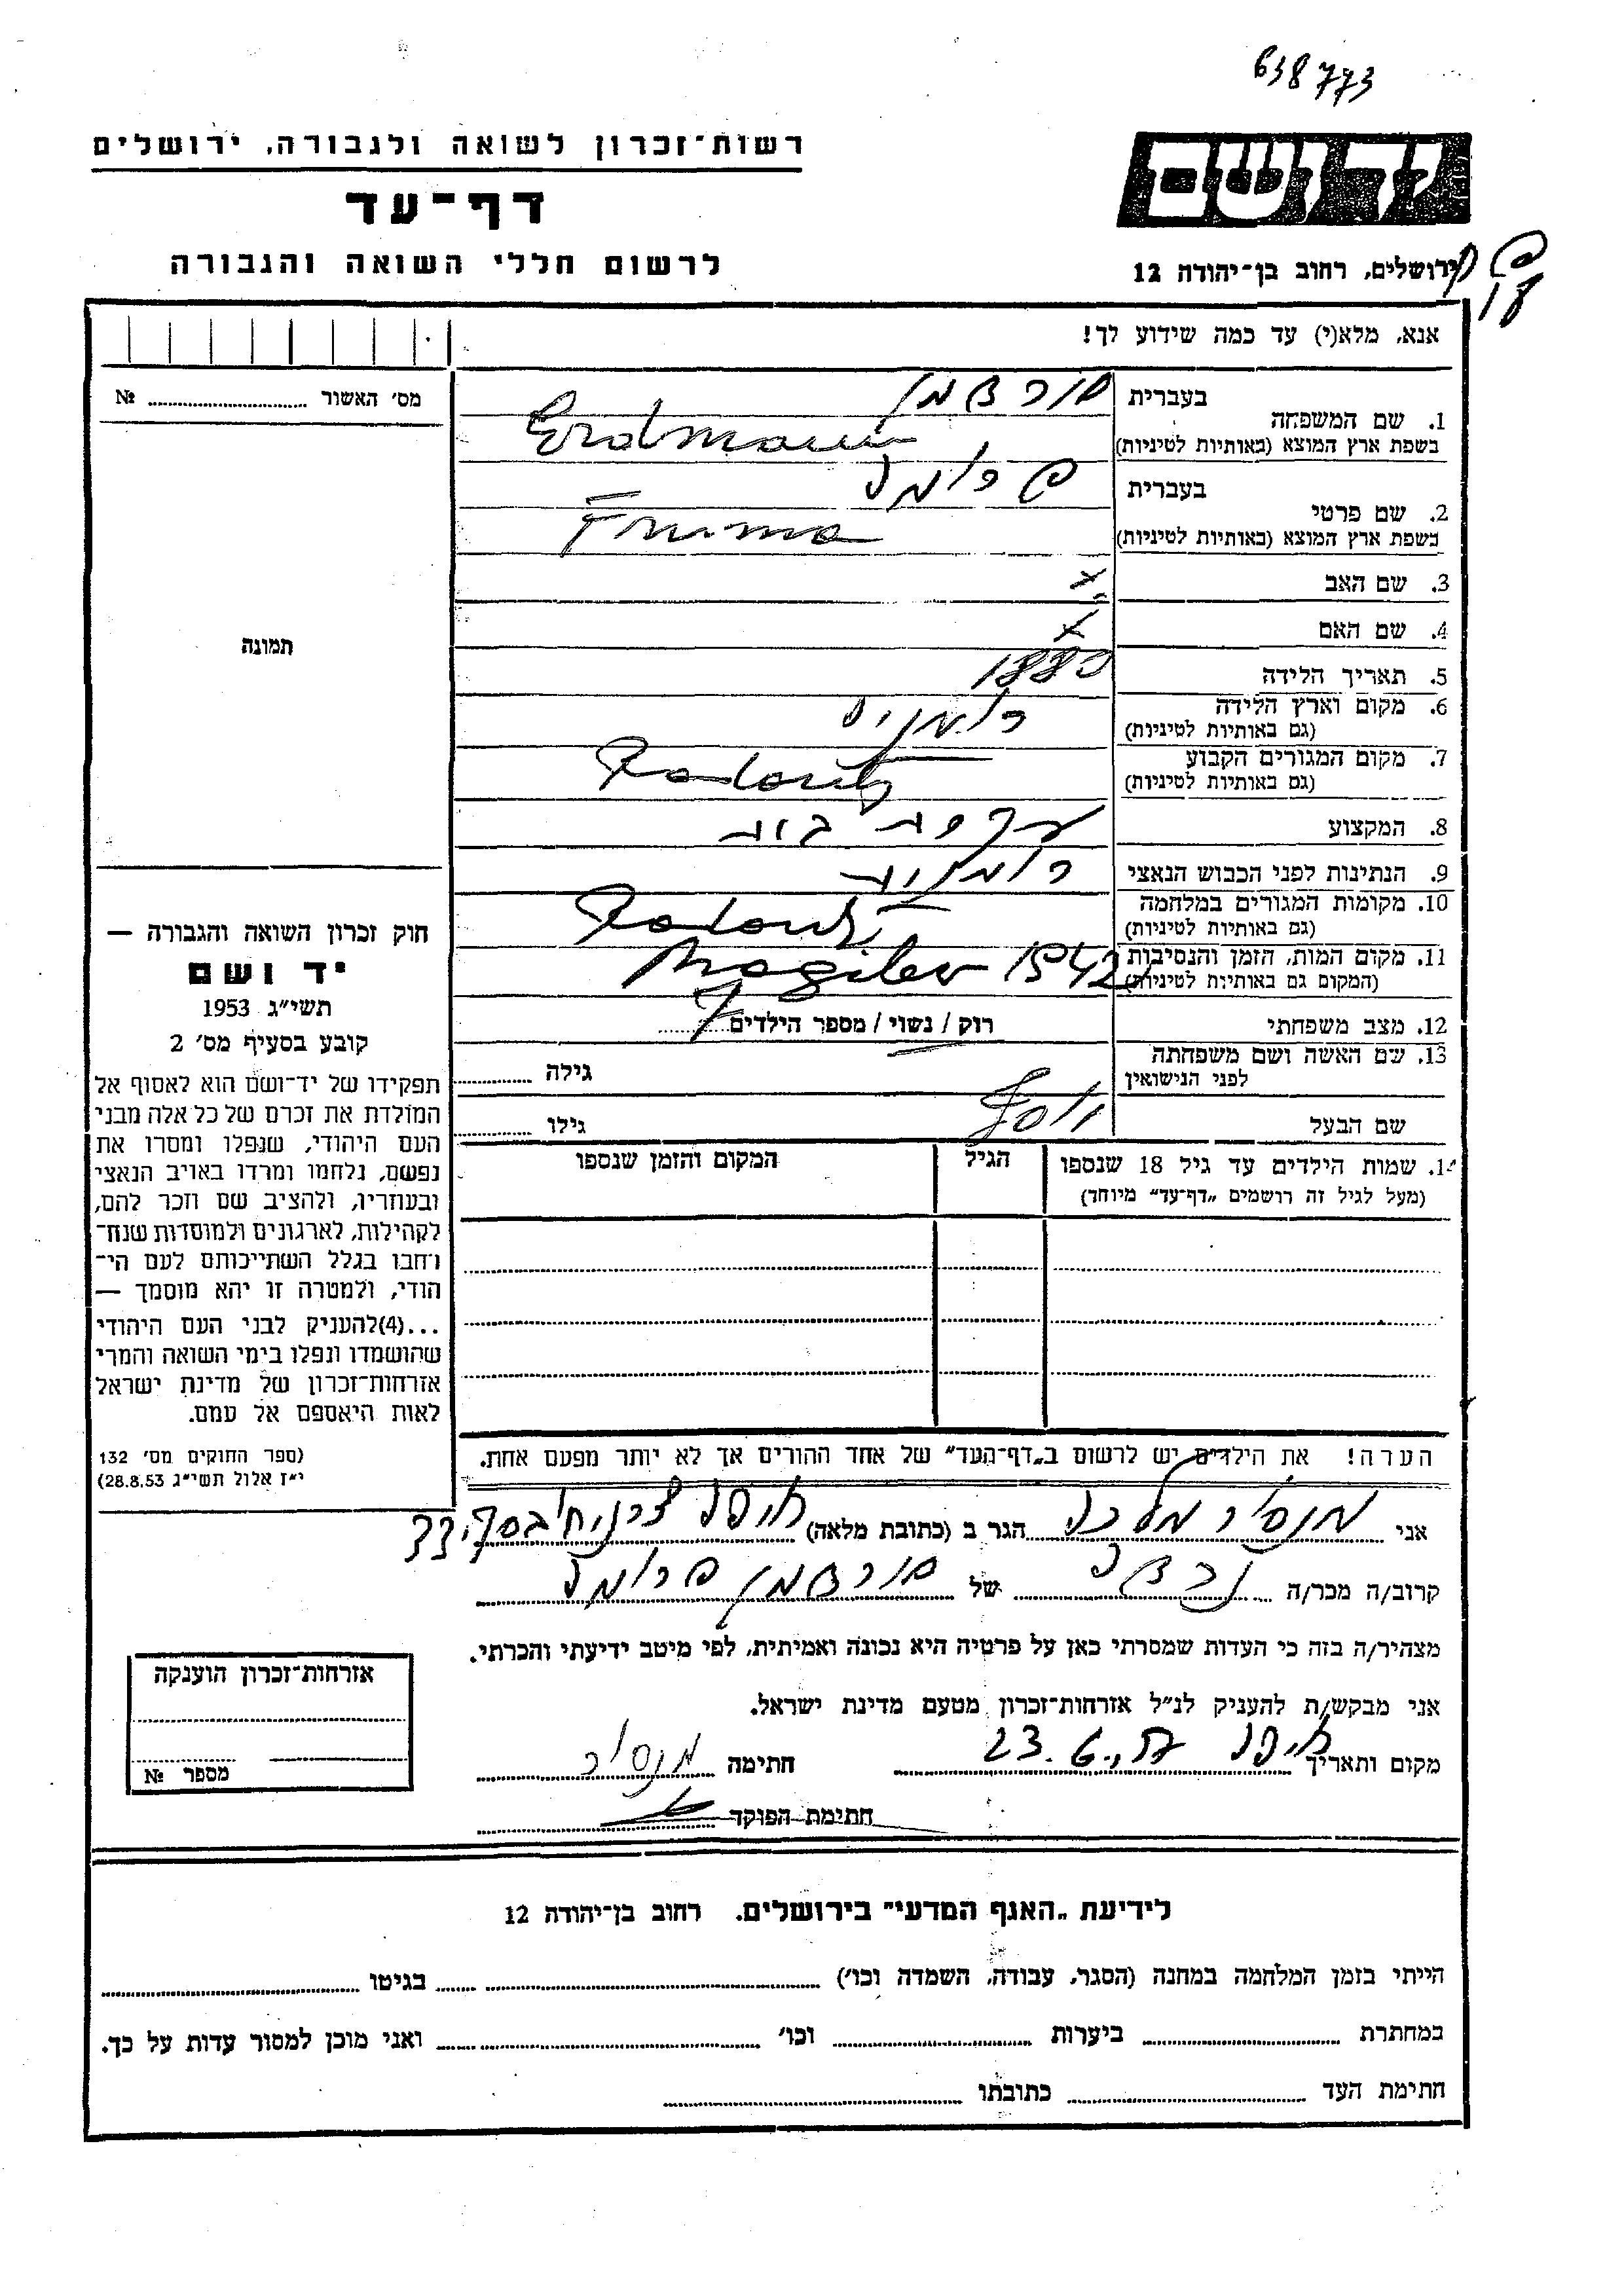 638773
רשות־זכרון לשואה ולגבורה, ירושלים
דף־עד
לרשום חללי השואה והגבורה
ידושם
ירושלים, רחוב בן־יהודה 12
אנא, מלא(י) עד כמה שידוע לך!
מס׳ האשור № 
1. שם המשפחה
בעברית
בשפת ארץ המוצא (באותיות לטיניות) Erdmann
2. שם פרטי
בעברית פרומה
בשפת ארץ המוצא (באותיות לטיניות) Fruma
3. שם האב x
4. שם האם x
5. תאריך הלידה 1880
6. מקום וארץ הלידה רומניה
(גם באותיות לטיניות)
7. מקום המגורים הקבוע Radautz
(גם באותיות לטיניות)
8. המקצוע עקרת בית
9. הנתינות לפני הכבוש הנאצי רומנית
10. מקומות המגורים במלחמה Radautz
(גם באותיות לטיניות)
11. מקום המות, הזמן והנסיבות Mogilev 1942
(המקום גם באותיות לטיניות)
12. מצב משפחתי רוק / נשוי / מספר הילדים 7
13. שם האשה ושם משפחתה
לפני הנישואין גילה
שם הבעל יוסף גילו
14. שמות הילדים עד גיל 18 שנספו
(מעל לגיל זה רושמים „דף־עד” מיוחד)
הגיל
המקום והזמן שנספו
תמונה
חוק זכרון השואה והגבורה —
יד ושם
תשי״ג 1953
קובע בסעיף מס׳ 2
תפקידו של יד־ושם הוא לאסוף אל
המולדת את זכרם של כל אלה מבני
העם היהודי, שנפלו ומסרו את
נפשם, נלחמו ומרדו באויב הנאצי
ובעוזריו, ולהציב שם וזכר להם,
לקהילות, לארגונים ולמוסדות שנח־
רחבו בגלל השתייכותם לעם הי־
הודי, ולמטרה זו יהא מוסמך —
...(4)להעניק לבני העם היהודי
שהושמדו ונפלו בימי השואה והמרי
אזרחות־זכרון של מדינת ישראל
לאות היאספם אל עמם.
(ספר החוקים מס׳ 132
י״ז אלול תשי״ג 28.8.53)
הערה! את הילדים יש לרשום ב„דף־העד” של אחד ההורים אך לא יותר מפעם אחת.
אני הגר ב (כתובת מלאה) חיפה
קרוב/ה מכר/ה נכדה של פרומה
מצהיר/ה בזה כי העדות שמסרתי כאן על פרטיה היא נכונה ואמיתית, לפי מיטב ידיעתי והכרתי.
אני מבקש/ת להעניק לנ״ל אזרחות־זכרון מטעם מדינת ישראל.
מקום ותאריך חיפה 23.6. חתימה
חתימת הפוקד
אזרחות־זכרון הוענקה
מספר №
לידיעת „האגף המדעי” בירושלים. רחוב בן־יהודה 12
הייתי בזמן המלחמה במחנה (הסגר, עבודה, השמדה וכו׳) בגיטו
במחתרת ביערות וכו׳ ואני מוכן למסור עדות על כך.
חתימת העד כתובתו